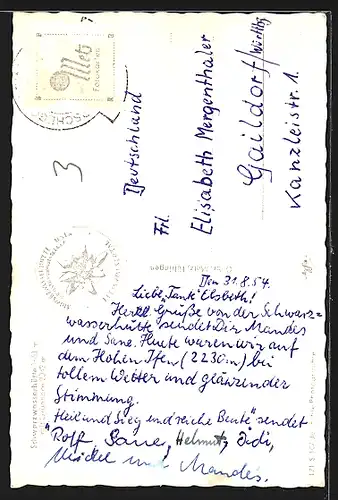 Metz
Fotokarten
3
Deutschland
Frl.
Elisabeth Mergenthaler
Gaildorf/Württbg
Kanzleistr. 1.
Den 31.8.54.
Liebe "Tante" Elsbeth!
Herzl. Grüße von der Schwarz=
wasserhütte sendet Dir Mandes
und Sane. Heute waren wir auf
dem Hohen Ifen (2230m) bei
tollem Wetter und glänzender
Stimmung.
"Heil und Sieg und reiche Beute" sendet
Rolf Sane, Helmut, Didi,
und Mandes.
Schwarzwasserhütte